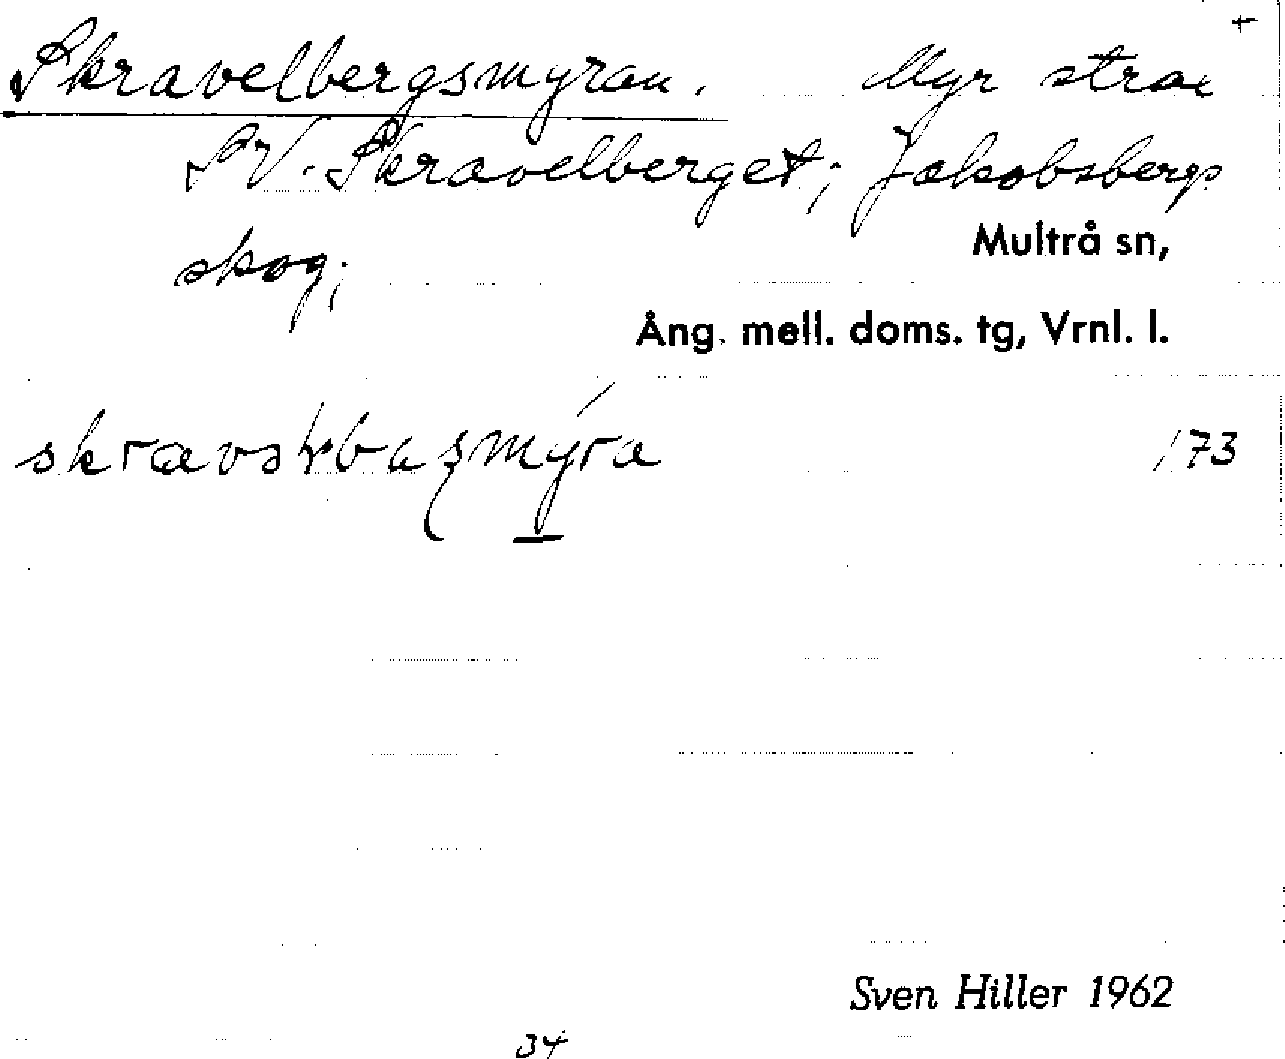 +
Skravelbergsmyran. Myr strax
SV. Skravelberget; Jakobsbergs
skog;
Multrå sn,
Ång. mell. doms. tg, Vrnl. l.
173
Sven Hiller 1962
34